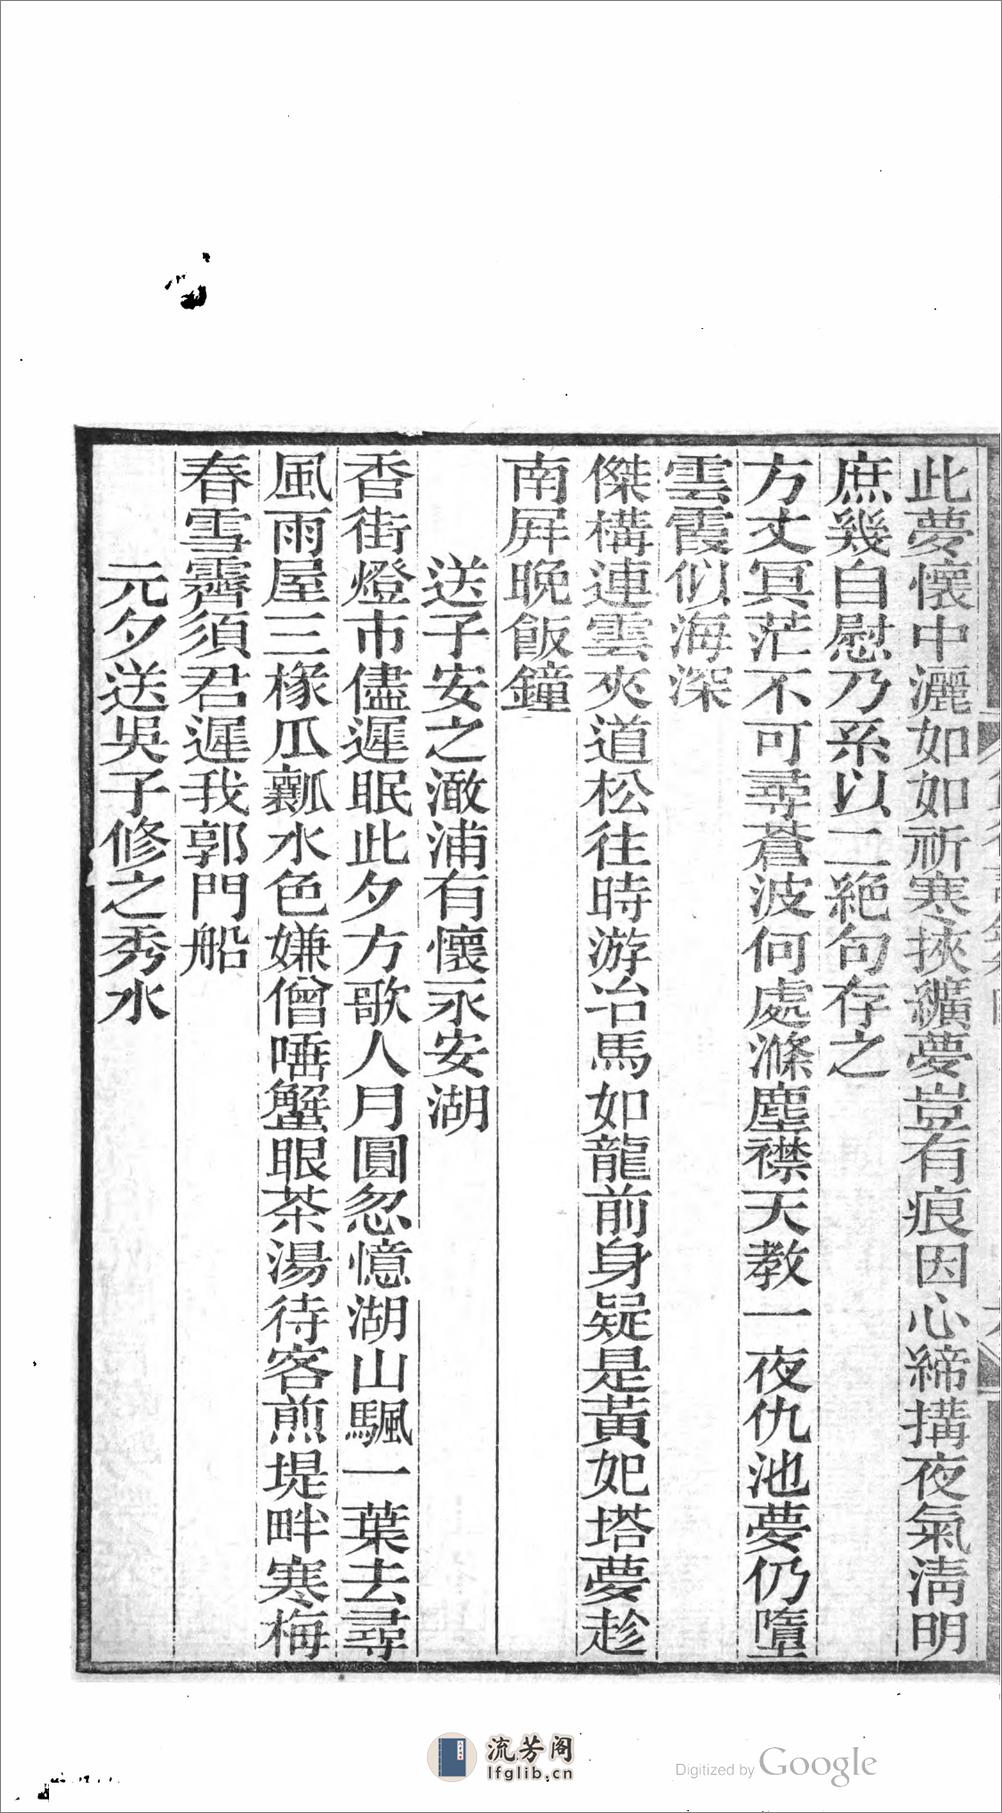 此夢懷中灑如如祈寒挾纊夢豈有痕因心締搆夜氣淸明
庶幾自慰乃系以二絶句存之
方丈冥茫不可尋蒼波何處滌塵襟天教一夜仇池夢仍墮
雲霞似海深
傑構連雲夾道松往時游冶馬如龍前身疑是黃妃塔夢趁
南屛晚飯鐘
送子安之澉浦有懷永安湖
香街燈市儘遲眠此夕方歌人月圓忽憶湖山颿一葉去尋
風雨屋三椽瓜瓤水色嫌僧唾蟹眼茶湯待客煎堤畔寒梅
春雪霽須君遲我郭門船
元夕送吳子修之秀水
流芳阁
lfglib.cn
Digitized by Google